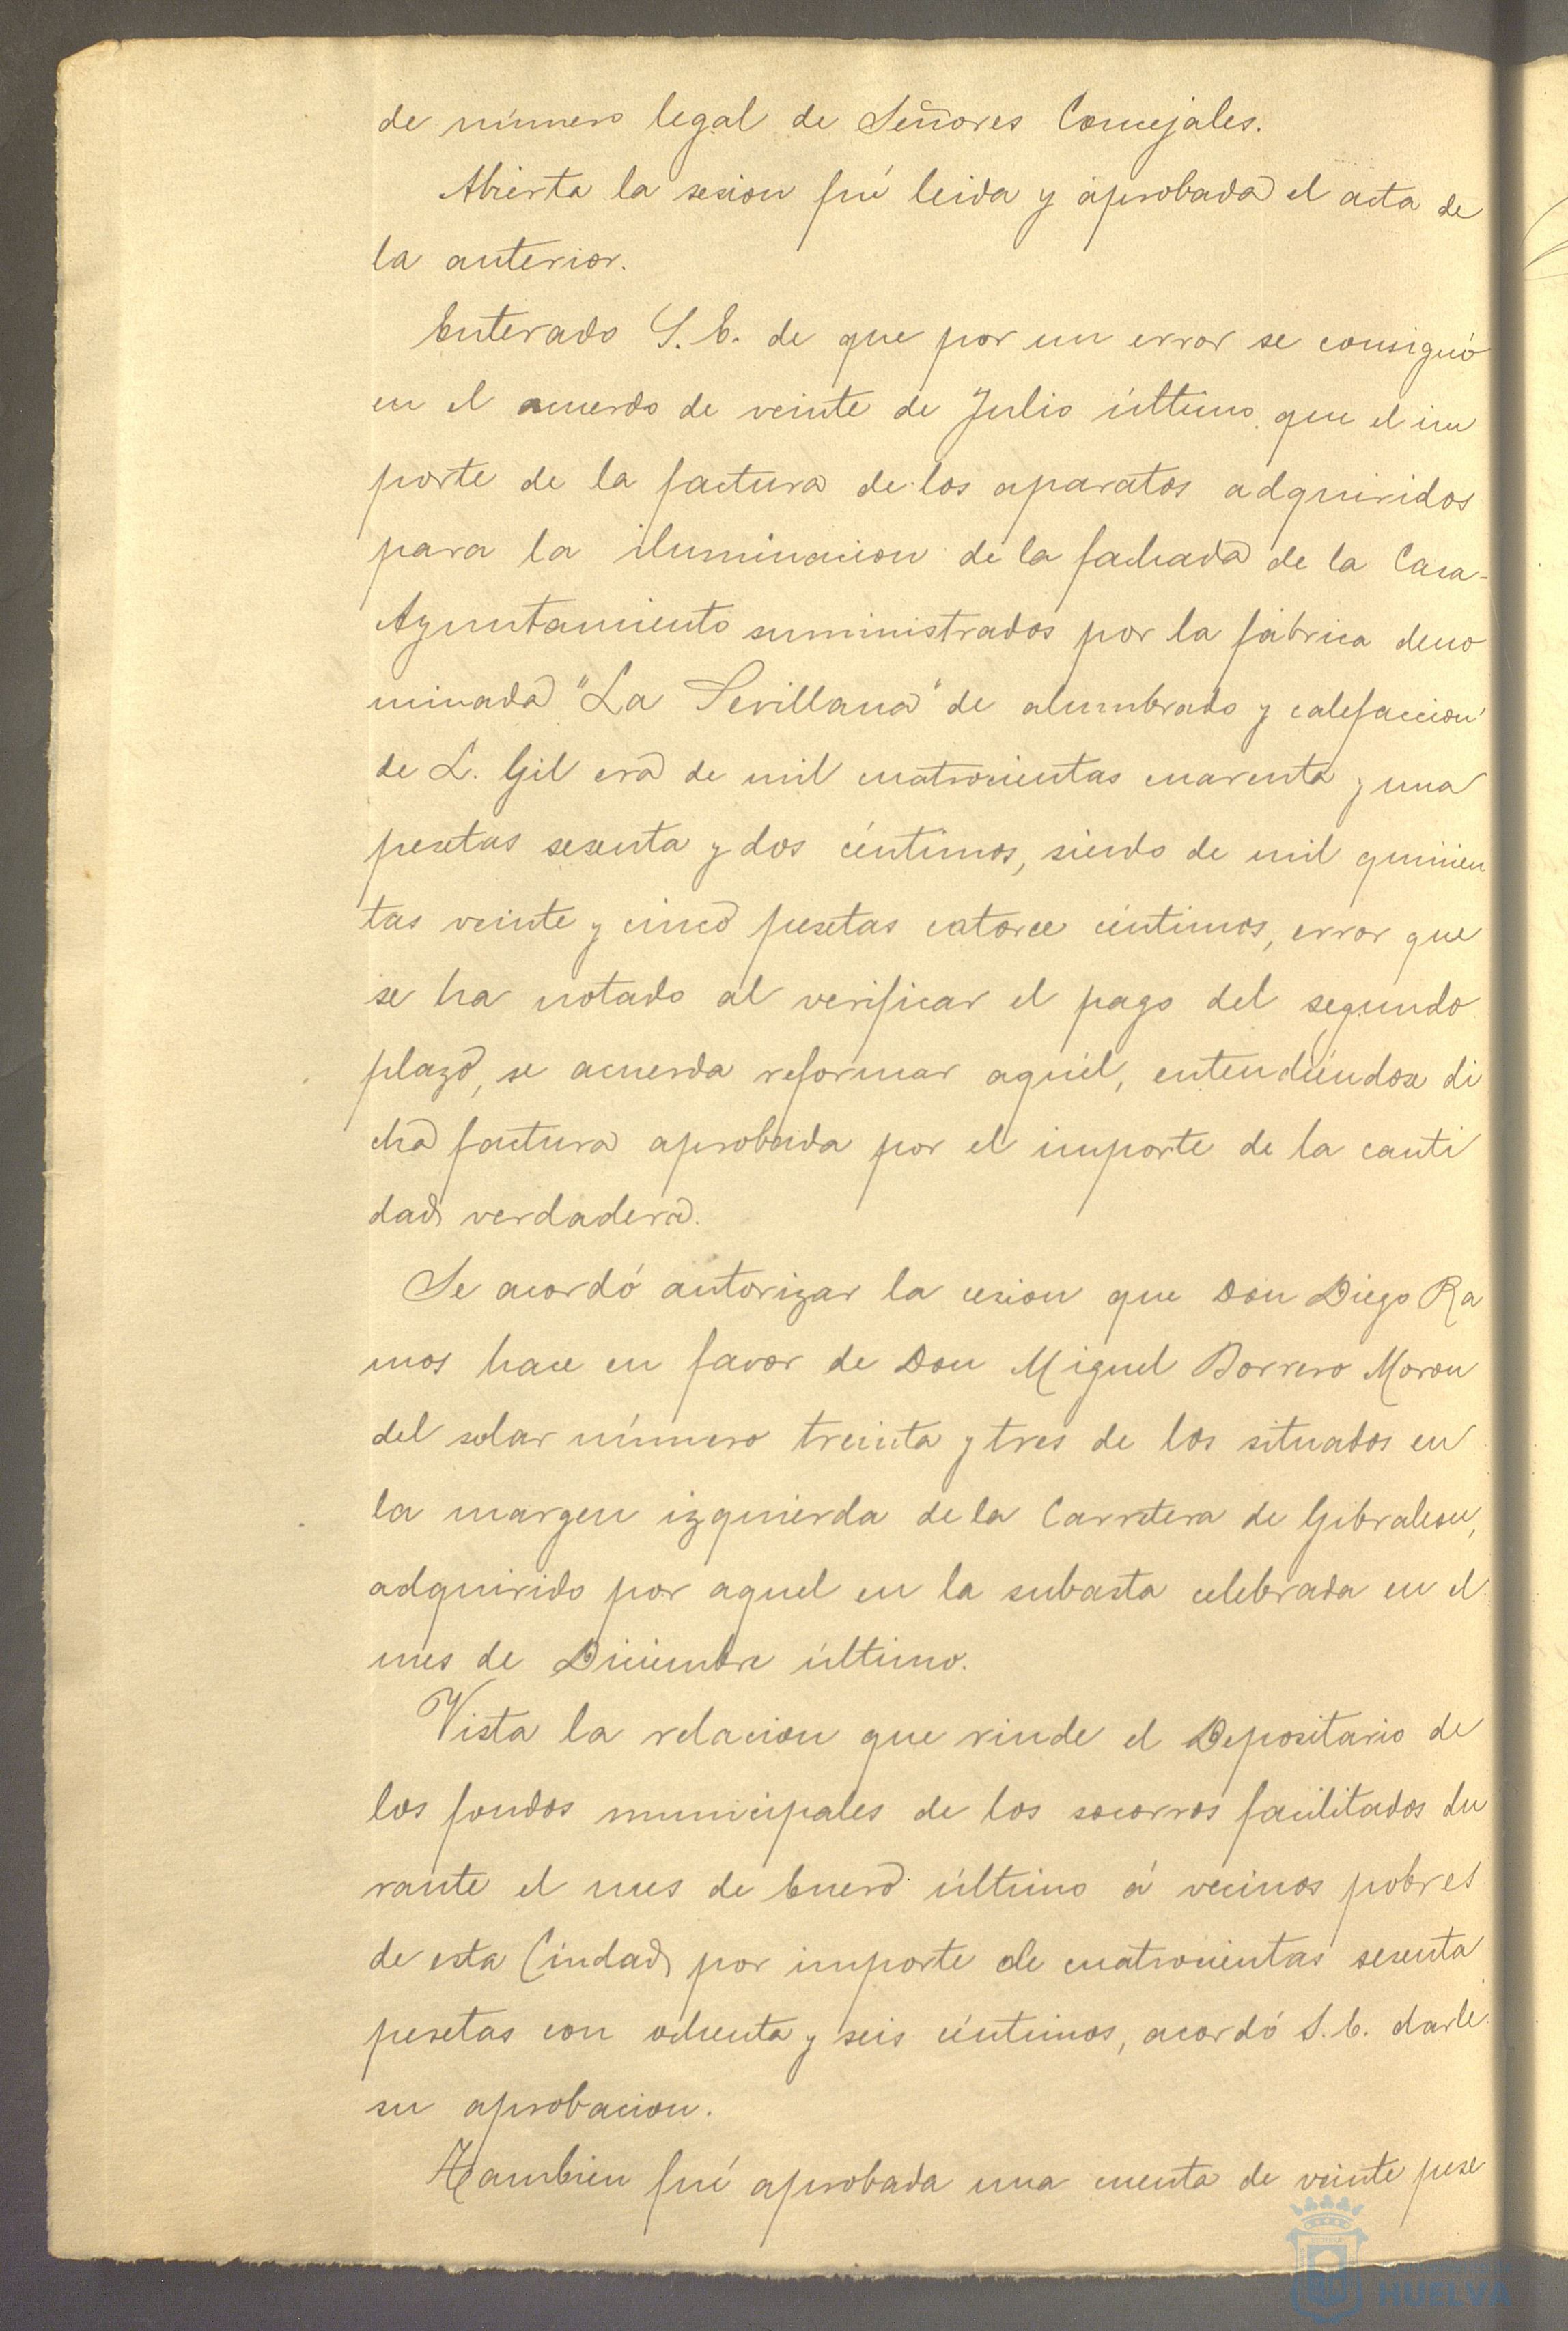 de número legal de Señores Concejales.
Abierta la sesion fué leida y aprobada el acta de
la anterior.
Enterado S. E. de que por un error se consignó
en el acuerdo de veinte de Julio último que el im
porte de la factura de los aparatos adquiridos
para la iluminacion de la fachada de la Casa-
Ayuntamiento suministrados por la fábrica deno
minada "La Sevillana" de alumbrado y calefaccion
de L. Gil era de mil cuatrocientas cuarenta y una
pesetas sesenta y dos céntimos, siendo de mil quinien
tas veinte y cinco pesetas catorce céntimos, error que
se ha notado al verificar el pago del segundo
plazo, se acuerda reformar aquél, entendiéndose di
cha factura aprobada por el importe de la canti
dad verdadera.
Se acordó autorizar la cesion que Don Diego Ra
mos hace en favor de Don Miguel Borrero Moron
del solar número treinta y tres de los situados en
la margen izquierda de la Carretera de Gibraleon,
adquirido por aquel en la subasta celebrada en el
mes de Diciembre último.
Vista la relacion que rinde el Depositario de
los fondos municipales de los socorros facilitados du
rante el mes de Enero último á vecinos pobres
de esta Ciudad por importe de cuatrocientas sesenta
pesetas con ochenta y seis céntimos, acordó S. E. darle
su aprobacion.
Tambien fué aprobada una cuenta de veinte pese
HUELVA